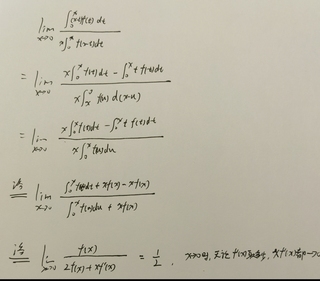 lim x→0 ∫₀ˣ (x-t)f(t)dt / x∫₀ˣ f(x-t)dt
= lim x→0 x∫₀ˣ f(t)dt - ∫₀ˣ t f(t)dt / x∫ₓ⁰ f(u) d(x-u)
= lim x→0 x∫₀ˣ f(t)dt - ∫₀ˣ t f(t)dt / x∫₀ˣ f(u)du
洛 lim x→0 ∫₀ˣ f(t)dt + xf(x) - xf(x) / ∫₀ˣ f(u)du + xf(x)
洛 lim x→0 f(x) / 2f(x) + xf'(x) = 1/2 . x→0时, 无论 f(x)